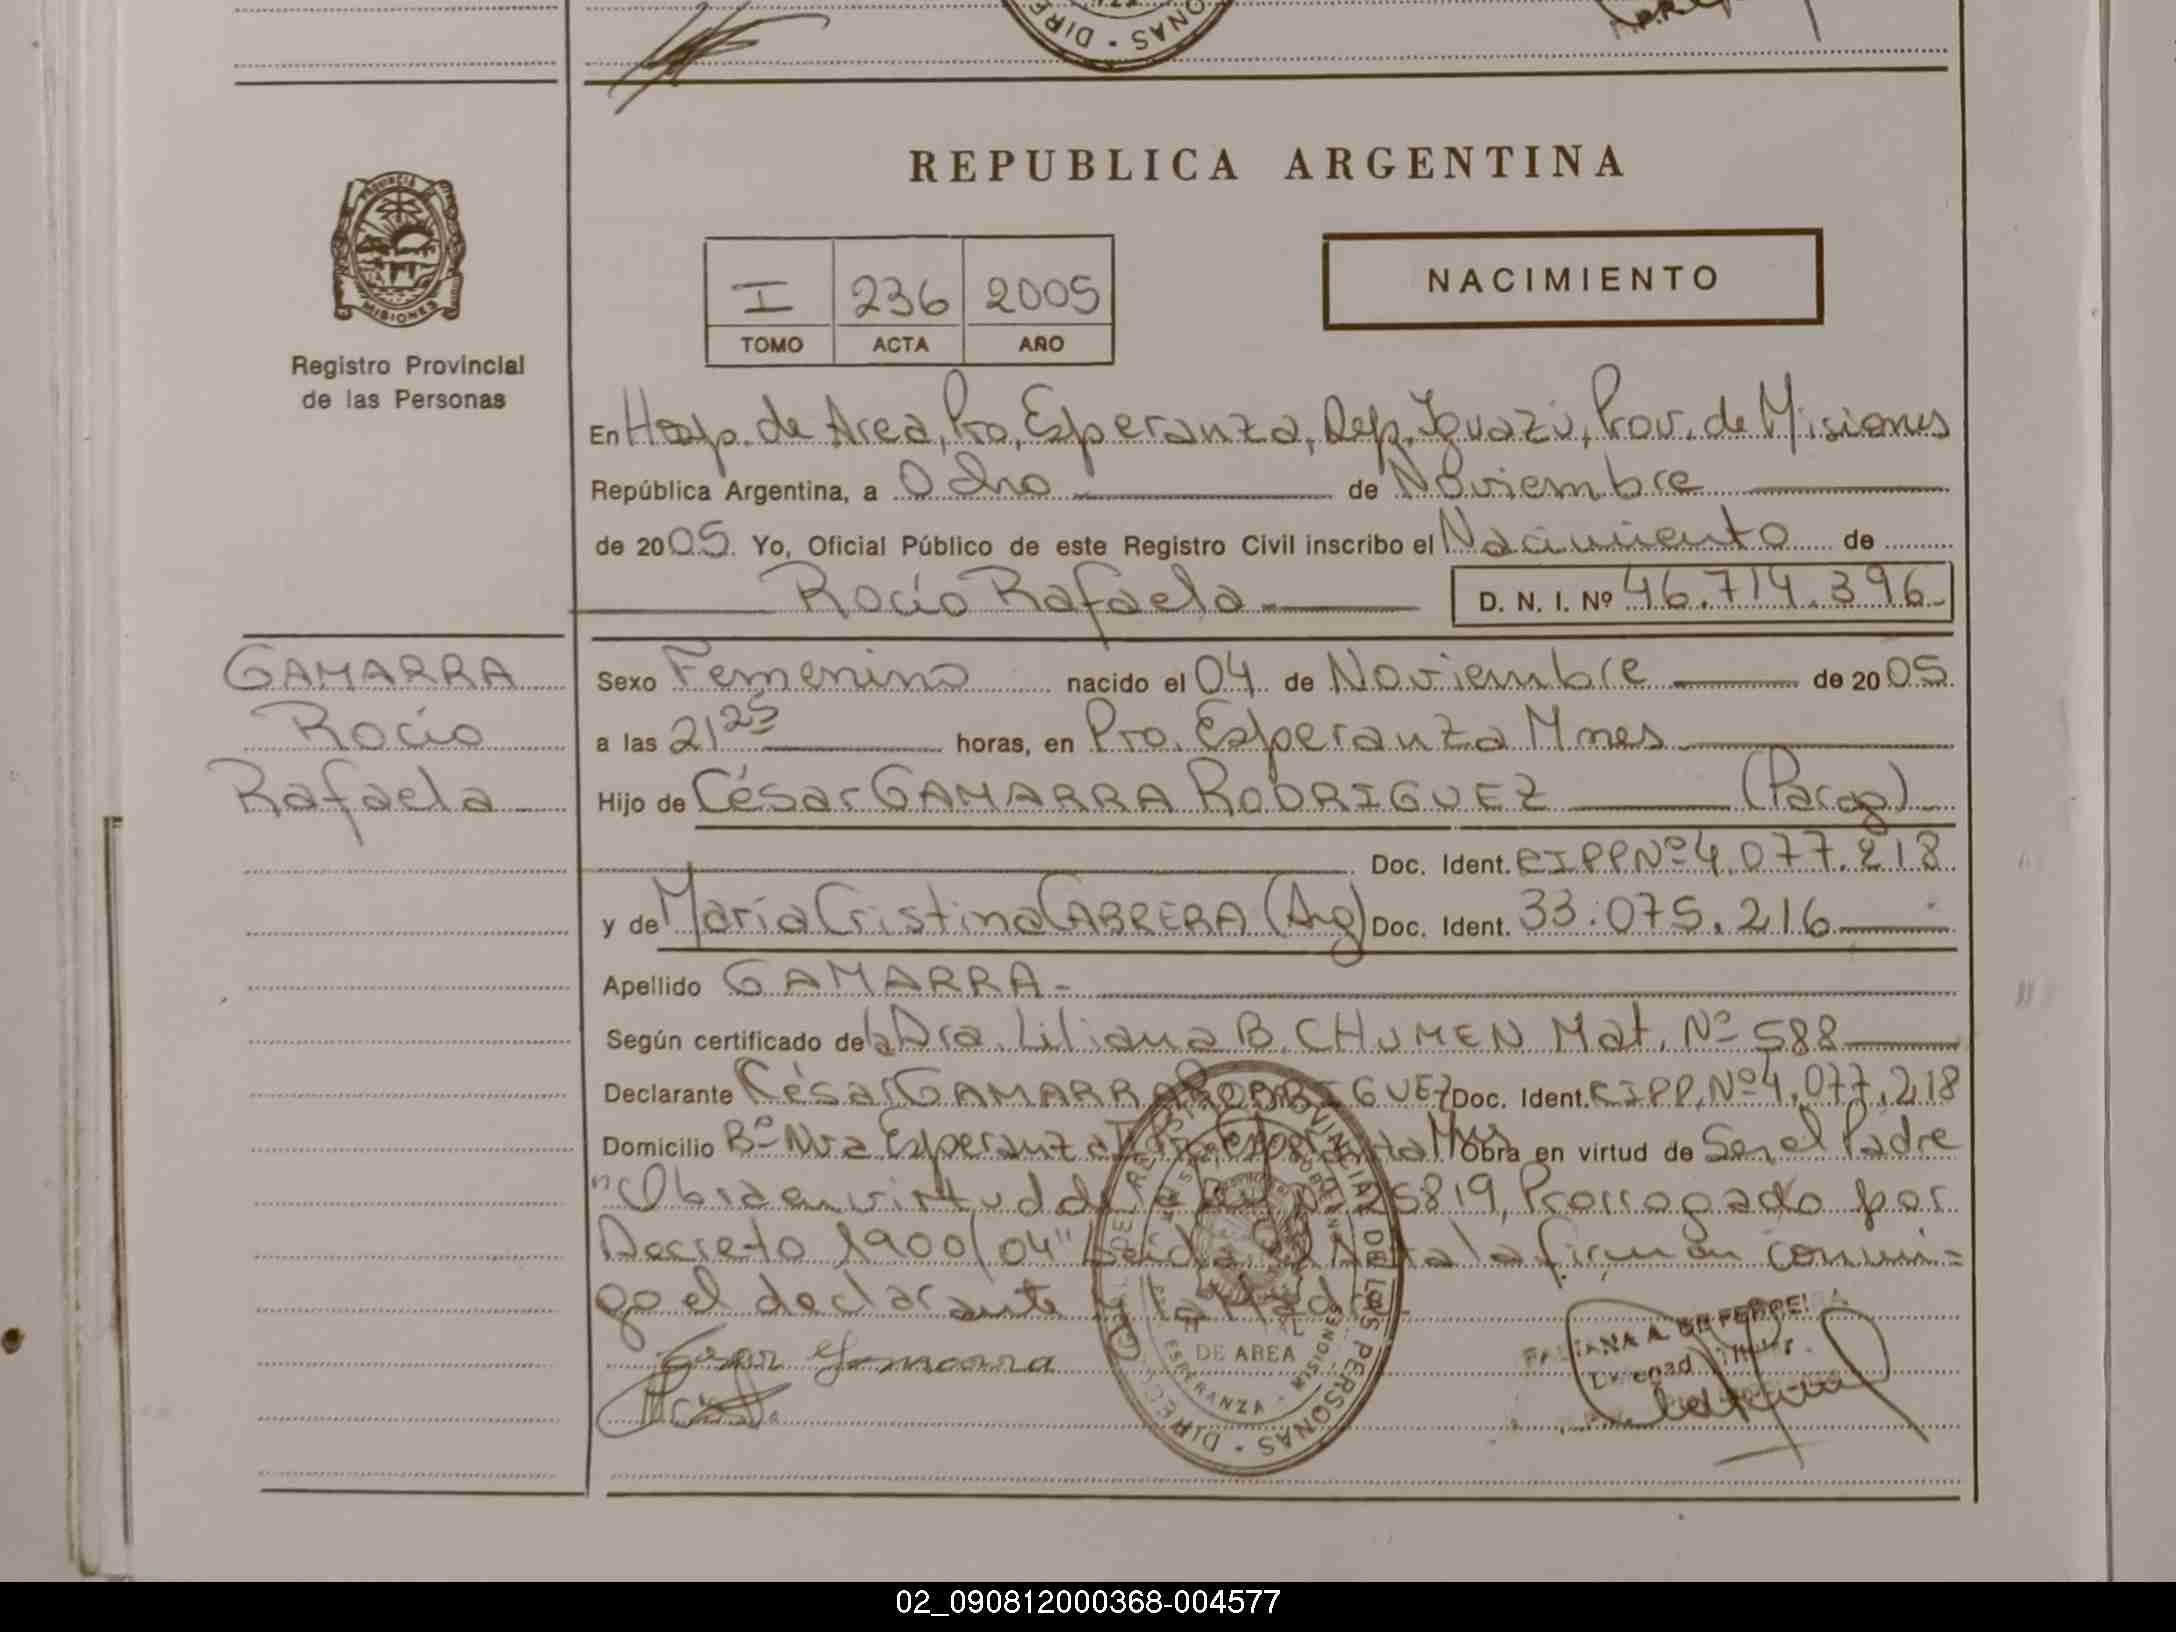 REPUBLICA ARGENTINA
PROVINCIA
MISIONES
Registro Provincial
de las Personas
I 236 2005
TOMO ACTA AÑO
NACIMIENTO
En Hosp. de Area, Pto. Esperanza, Dep. Iguazú, Prov. de Misiones
República Argentina, a Ocho de Noviembre
de 2005. Yo, Oficial Público de este Registro Civil inscribo el Nacimiento de
Rocío Rafaela D. N. I. Nº 46.714.396
GAMARRA
Rocío
Rafaela
Sexo Femenino nacido el 04 de Noviembre de 2005.
a las 21 25 horas, en Pto. Esperanza Mnes
Hijo de César GAMARRA RODRIGUEZ (Parag)
Doc. Ident. CIPP Nº 4.077.218
y de María Cristina CABRERA (Arg) Doc. Ident. 33.075.216
Apellido GAMARRA
Según certificado de la Dra. Liliana B. CHUMEN Mat. Nº 588
Declarante César GAMARRA RODRIGUEZ Doc. Ident. CIPP. Nº 4.077.218
Domicilio Bº Nva Esperanza Mnes Obra en virtud de Ser el Padre
"Obra en virtud de la 25819, Prorrogado por
Decreto 1900/04" Leída el Acta la firman conmi=
go el declarante y la Madre
DE AREA
ESPERANZA - MISIONES
DIRECC PROVINCIAL DE LAS PERSONAS
02_090812000368-004577